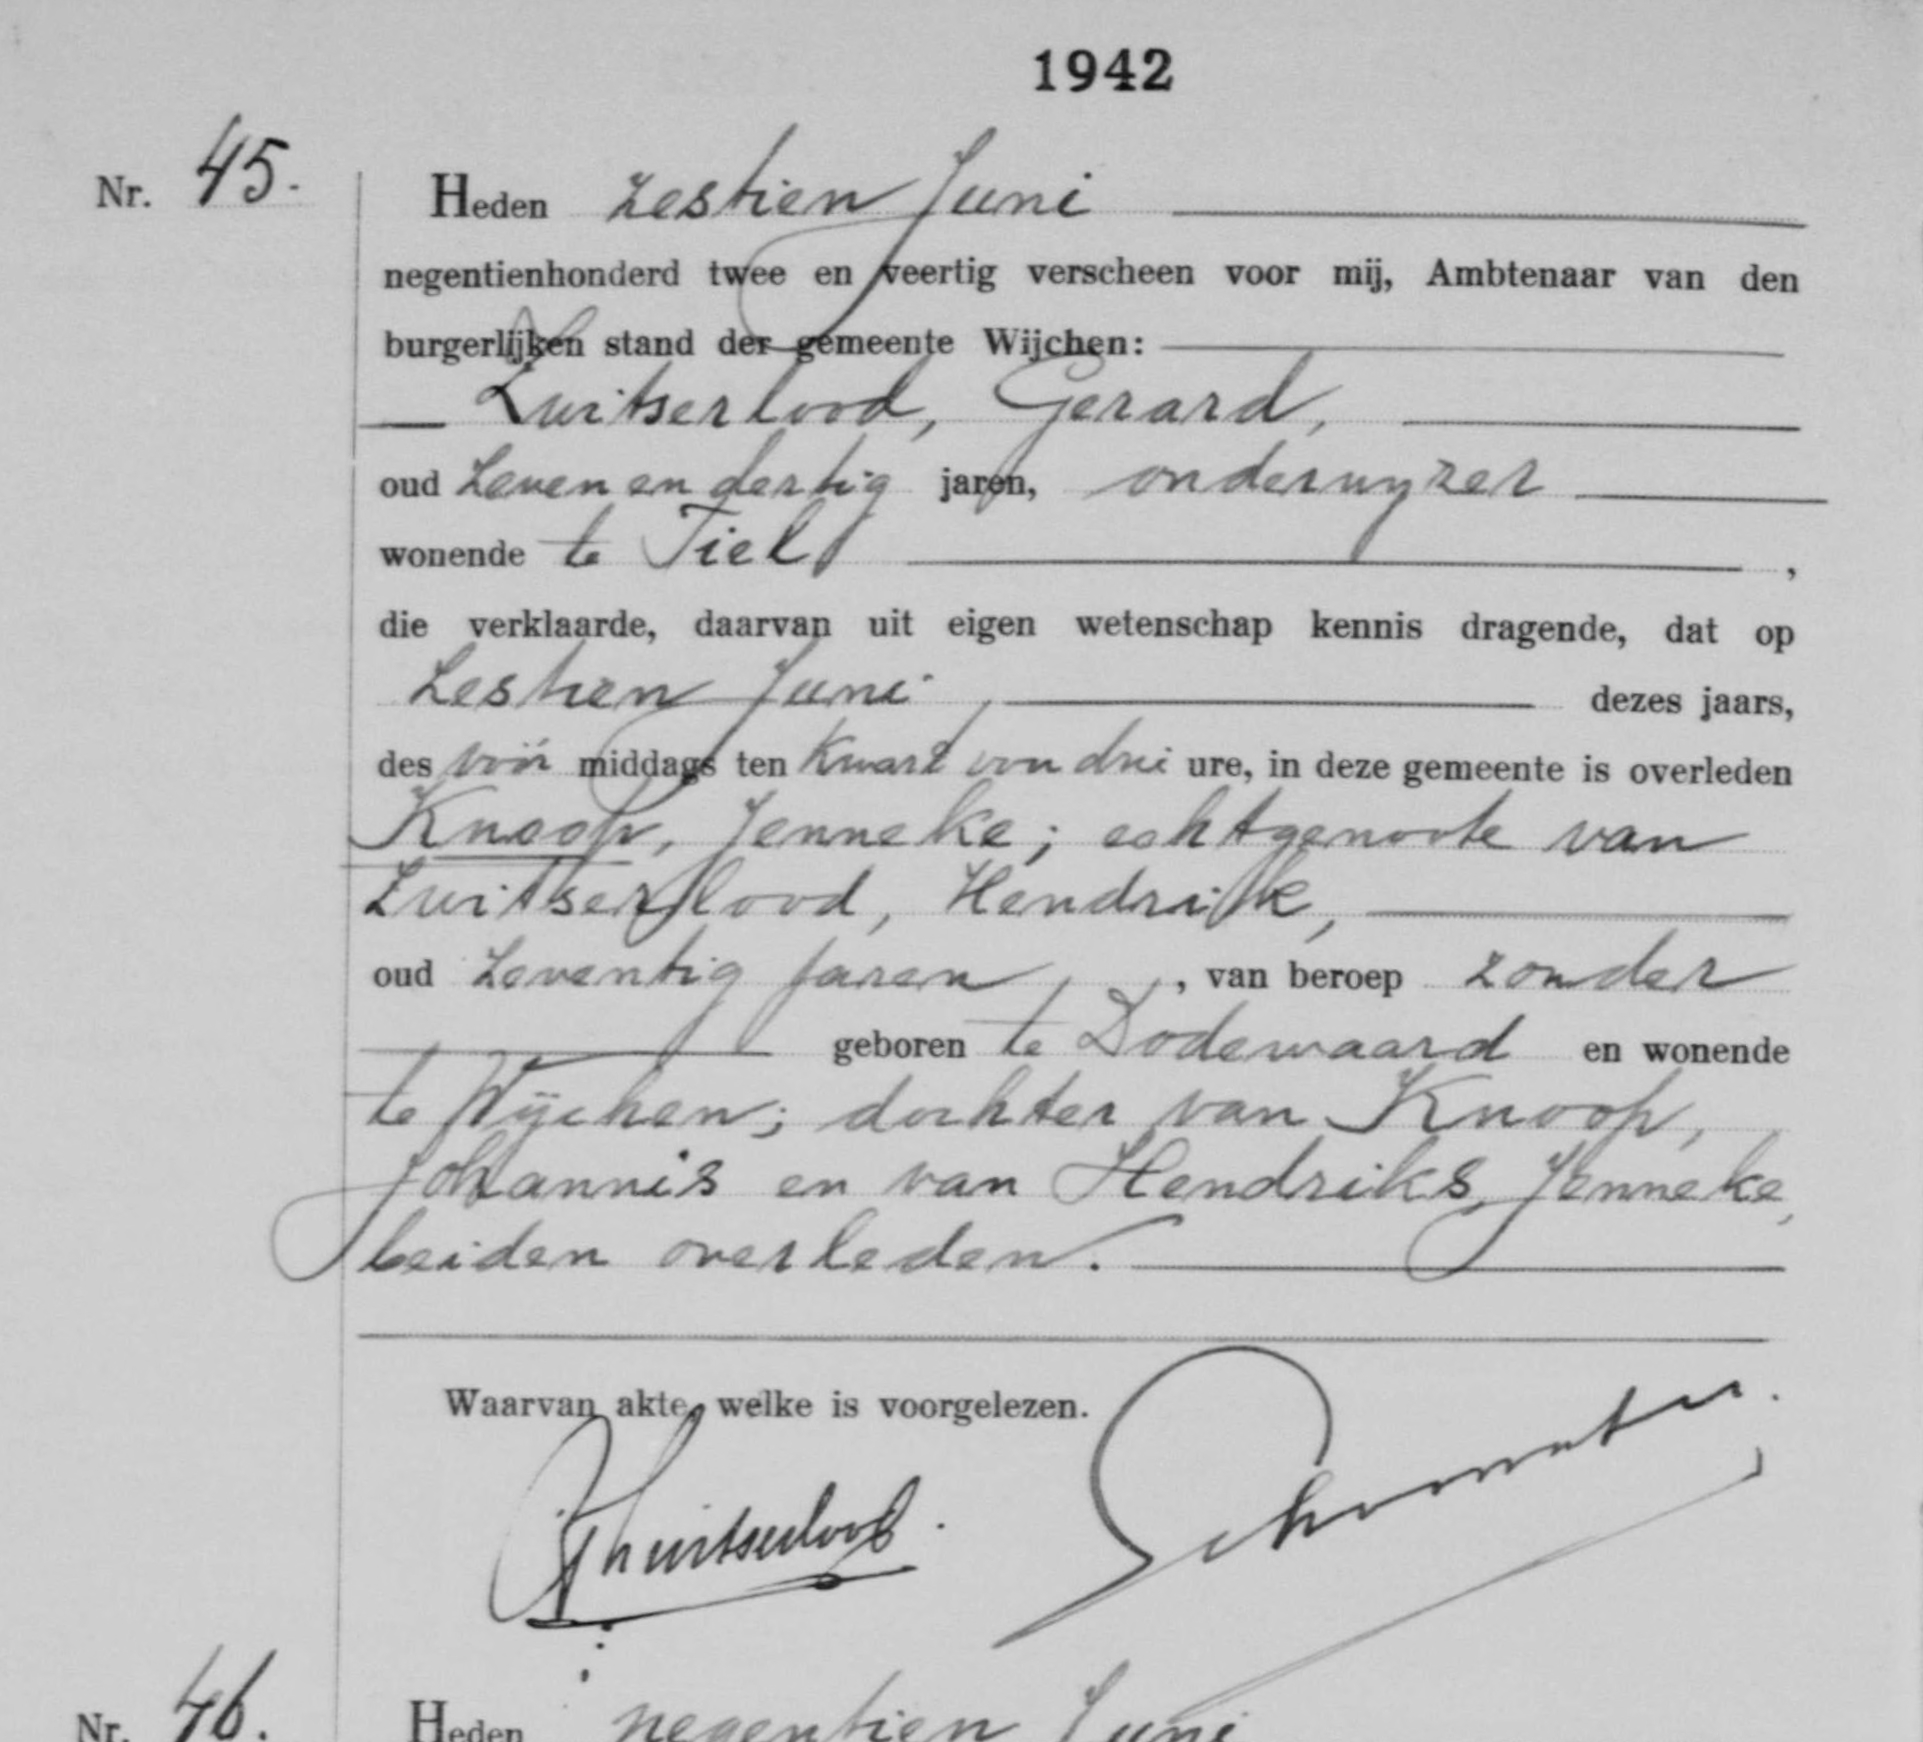 1942
Nr. 45. Heden zestien Juni
negentienhonderd twee en veertig verscheen voor mij, Ambtenaar van den
burgerlijken stand der gemeente Wijchen:
Zwitserlood, Gerard,
oud zeven en dertig jaren, onderwyzer
wonende te Tiel ,
die verklaarde, daarvan uit eigen wetenschap kennis dragende, dat op
zestien Juni, dezes jaars,
des vóór middags ten kwart voor drie ure, in deze gemeente is overleden
Knoop, Jenneke; echtgenoote van
Zwitserlood, Hendrik,
oud zeventig jaren, van beroep zonder
geboren te Dodewaard en wonende
te Wijchen; dochter van Knoop,
Johannis en van Hendriks, Jenneke,
beiden overleden.
Waarvan akte, welke is voorgelezen.
Zwitserlood.
Nr. 46. Heden negentien Juni